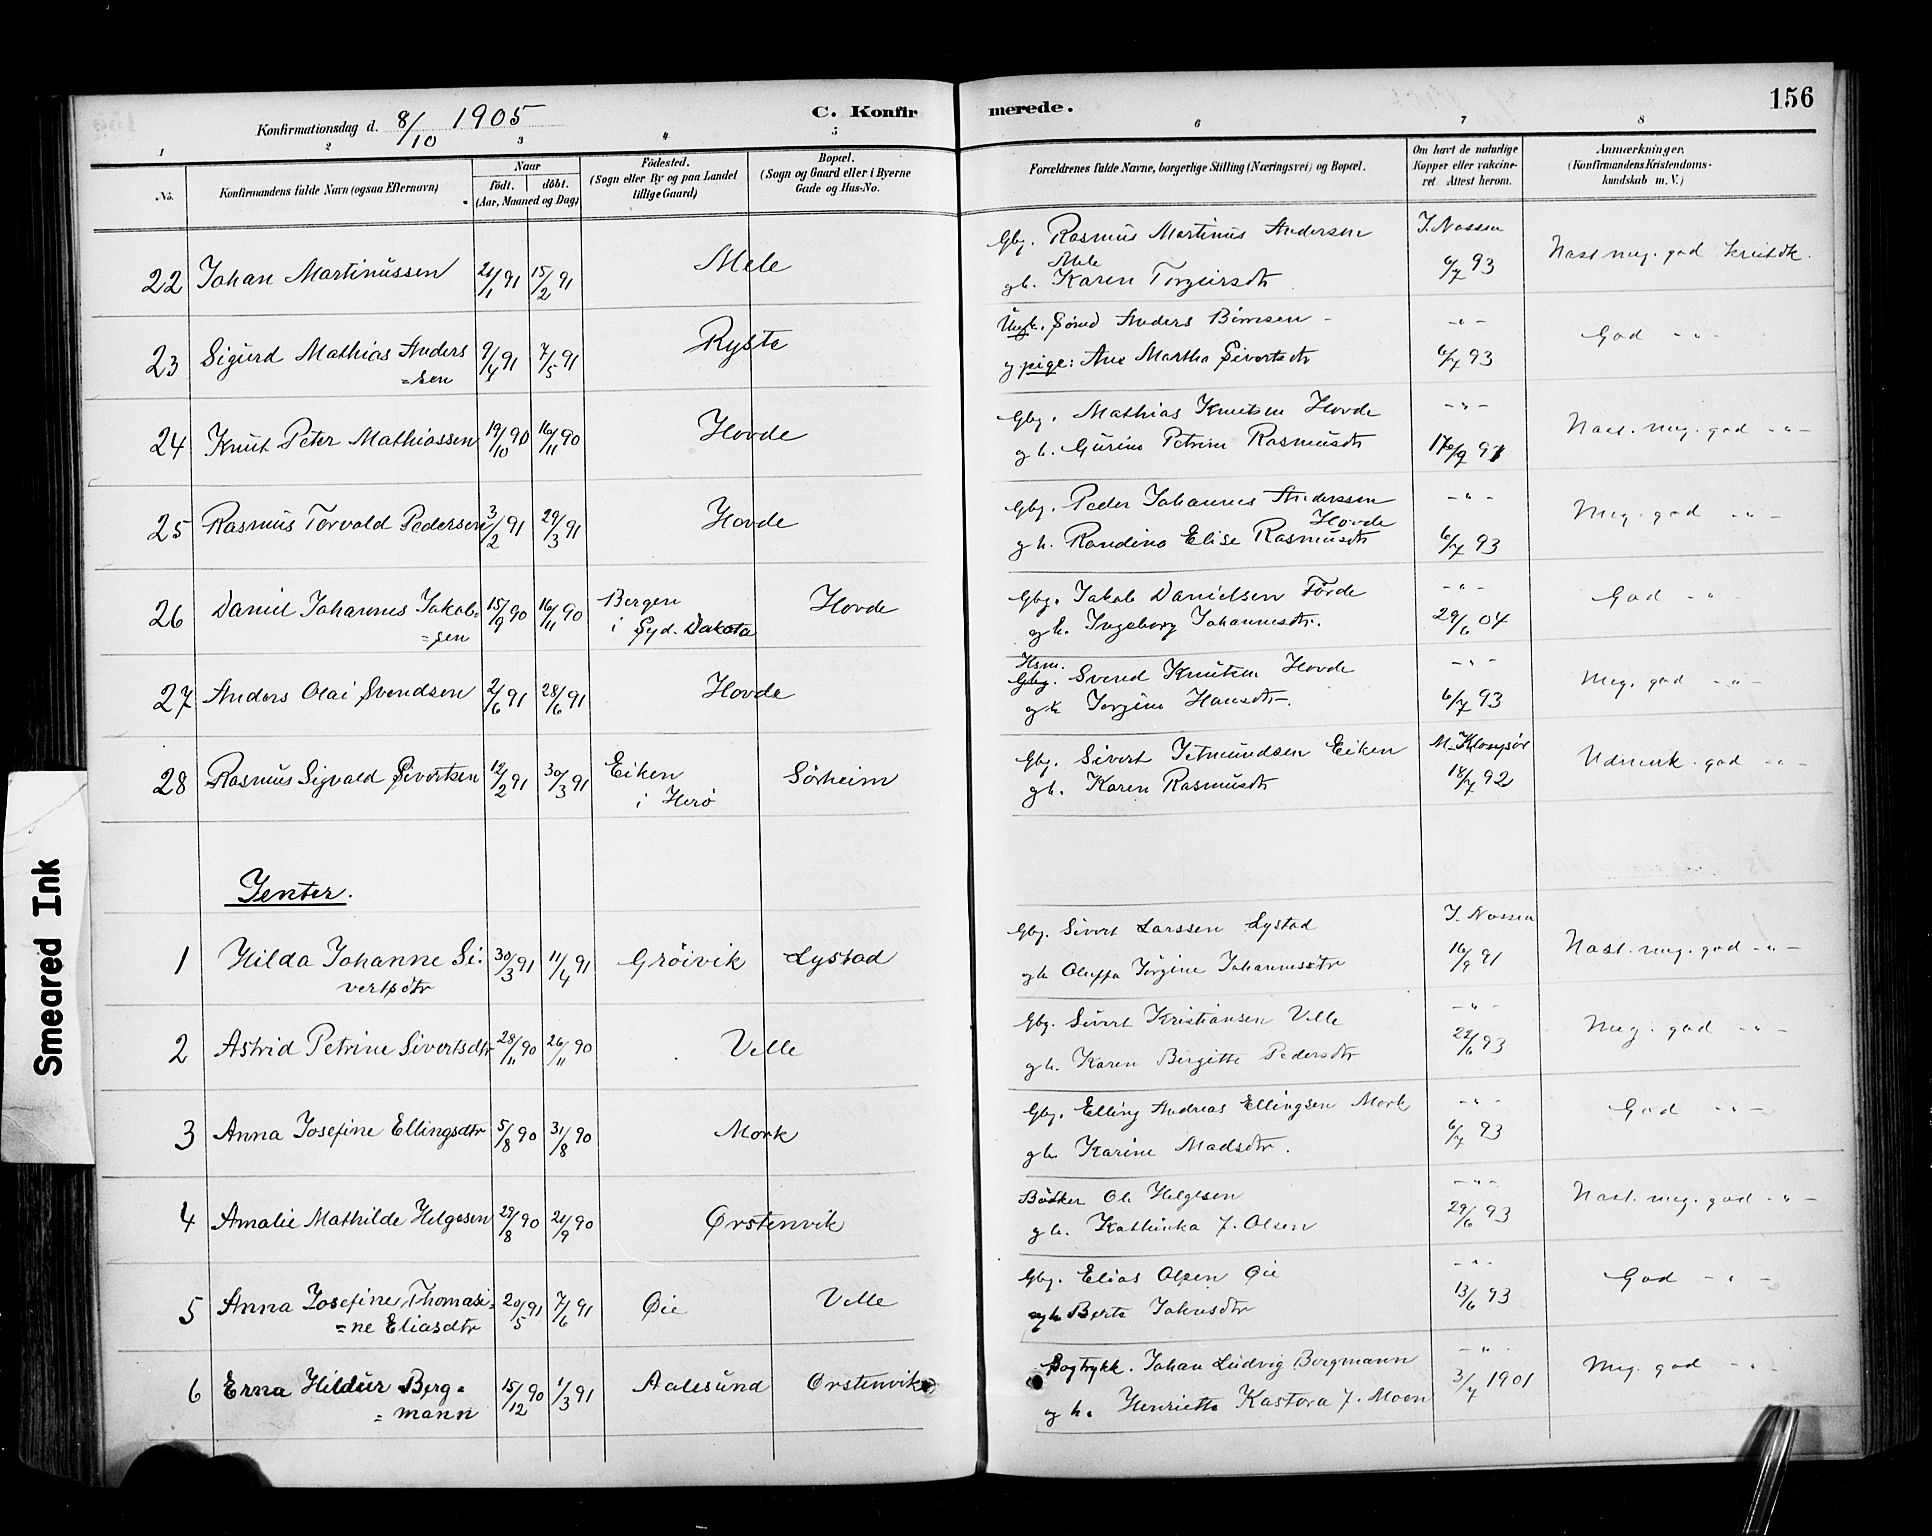 156
Konfirmationsdag d. 8/10 1905 C. Konfirmerede.
1 2 3 4 5 6 7 8
No. Konfirmandens fulde Navn (ogsaa Efternavn) Naar født. døbt. (Aar, Maaned og Dag) Fødested. (Sogn eller By og paa Landet tillige Gaard) Bopæl. (Sogn og Gaard eller i Byerne Gade og Hus-No. Forældrenes fulde Navne, borgerlige Stilling (Næringsvei) og Bopæl. Om havt de naturlige Kopper eller vakcineret. Attest herom. Anmærkninger. (Konfirmandens Kristendomskundskab m. V.)
22 Johan Martinussen 21/1 91 15/2 91 Mele Gbg. Rasmus Martinus Andersen J. Nossen
Mele
gh. Karen Torgeirsdtr 6/7 93 Nast meg. god Kristdk.
23 Sigurd Mathias Anders 9/4 91 7/5 91 Ryste Ungk. Søred Anders Børnsen - - " -
=sen og pige: Ane Martha Sivertsdtr 6/7 93 God - " -
24 Knut Peter Mathiassen 19/10 90 16/11 90 Hovde Gbg. Mathias Knutsen Hovde - " -
g h. Gurine Petrine Rasmusdtr 17/9 91 Nast. meg. god - " -
25 Rasmus Torvald Pedersen 3/2 91 29/3 91 Hovde Gbg. Peder Johannes Anderssen - " -
Hovde
g h. Randina Elise Rasmusdtr 6/7 93 Meg. god - " -
26 Daniel Johannes Jakob= 15/9 90 16/11 90 Bergen Hovde Gbg. Jakob Danielsen Førde - " -
=sen i Syd. Dakota g h. Ingeborg Johannesdtr. 29/6 04 God - " -
27 Anders Olai Svendsen 2/6 91 28/6 91 Hovde Hsm.
Gbg. Svend Knutsen Hovde - " -
g h Jørgine Hansdtr. 6/7 93 Meg. god - " -
28 Rasmus Sigvald Sivertsen 12/2 91 30/3 91 Eiken Sørheim Gbg. Sivert Jetmundsen Eiken M. Klongsør
i Herø g h. Karen Rasmusdtr 18/7 92 Udmerk. god - " -
Jenter.
1 Hilda Johanne Si= 30/3 91 11/4 91 Grøivik Lystad Gbg. Sivert Larssen Lystad J. Nossen
vertsdtr g h Oluffa Jørgine Johannesdtr 16/9 91 Nast. meg. god - " -
2 Astrid Petrine Sivertsdtr 28/11 90 26/11 90 Velle Gbg. Sivert Kristiansen Velle - " -
g h. Karen Birgitte Pedersdtr 22/6 93 Meg. god - " -
3 Anna Josefine Ellingsdtr 5/8 90 31/8 90 Mork Gbg. Elling Andreas Ellingsen Mork - " -
g h. Karine Madsdtr. 6/7 93 God - " -
4 Amalie Mathilde Helgesen 29/8 90 21/9 90 Ørstenvik Bødker Ole Helgesen - " -
g h. Kathinka f. Olsen 29/6 93 Nast. meg. god - " -
5 Anna Josefine Thomasi= 20/5 91 7/6 91 Øie Velle Gbg. Elias Olsen Øie - " -
=ne Eliasdtr g h Berte Johnsdtr 13/6 93 God - " -
6 Erna Hildur Berg= 15/12 90 1/3 91 Aalesund Ørstenvik Bogtrykk. Johan Ludvig Bergmann - " -
=mann g h. Henriette Kastora f. Moen 3/7 1901 Meg. god - " -
Smeared Ink